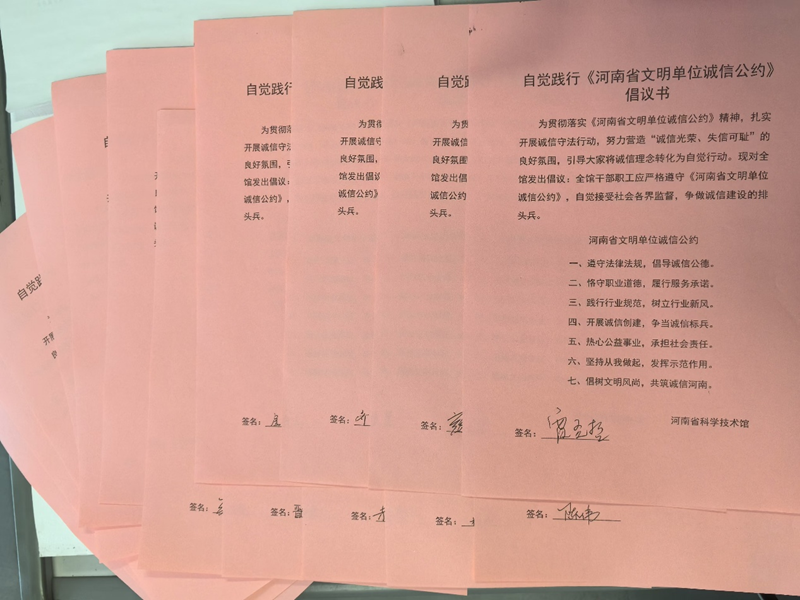 自觉践行《河南省文明单位诚信公约》
倡议书
为贯彻落实《河南省文明单位诚信公约》精神，扎实
开展诚信守法行动，努力营造“诚信光荣、失信可耻”的
良好氛围，引导大家将诚信理念转化为自觉行动。现对全
馆发出倡议：全馆干部职工应严格遵守《河南省文明单位
诚信公约》，自觉接受社会各界监督，争做诚信建设的排
头兵。
河南省文明单位诚信公约
一、遵守法律法规，倡导诚信公德。
二、恪守职业道德，履行服务承诺。
三、践行行业规范，树立行业新风。
四、开展诚信创建，争当诚信标兵。
五、热心公益事业，承担社会责任。
六、坚持从我做起，发挥示范作用。
七、倡树文明风尚，共筑诚信河南。
河南省科学技术馆
签名：
签名：陈伟
自觉践
为贯彻落
开展诚信守
良好氛围，
馆发出倡议
诚信公约》
头兵。
签名：
签名：
自觉践行
为贯彻落
开展诚信守法
良好氛围，引
馆发出倡议：
诚信公约》，
头兵。
签名：
签名：
自觉践行
为贯彻落
开展诚信守
良好氛围，引
馆发出倡议
诚信公约》，
头兵。
签名：
签名：
签名：
自觉践
开展